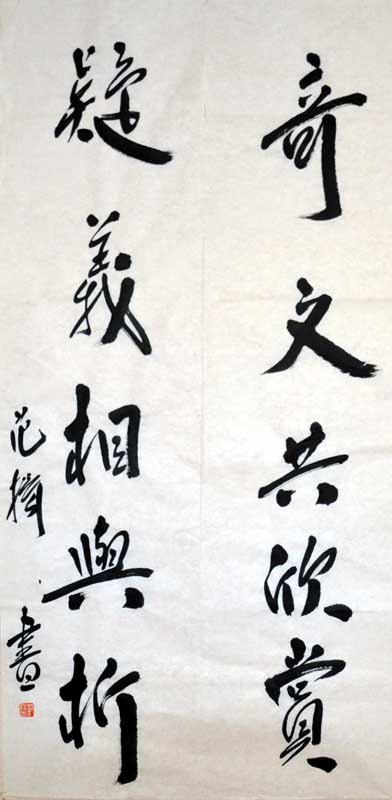 奇文共欣賞
疑義相與析
范
書